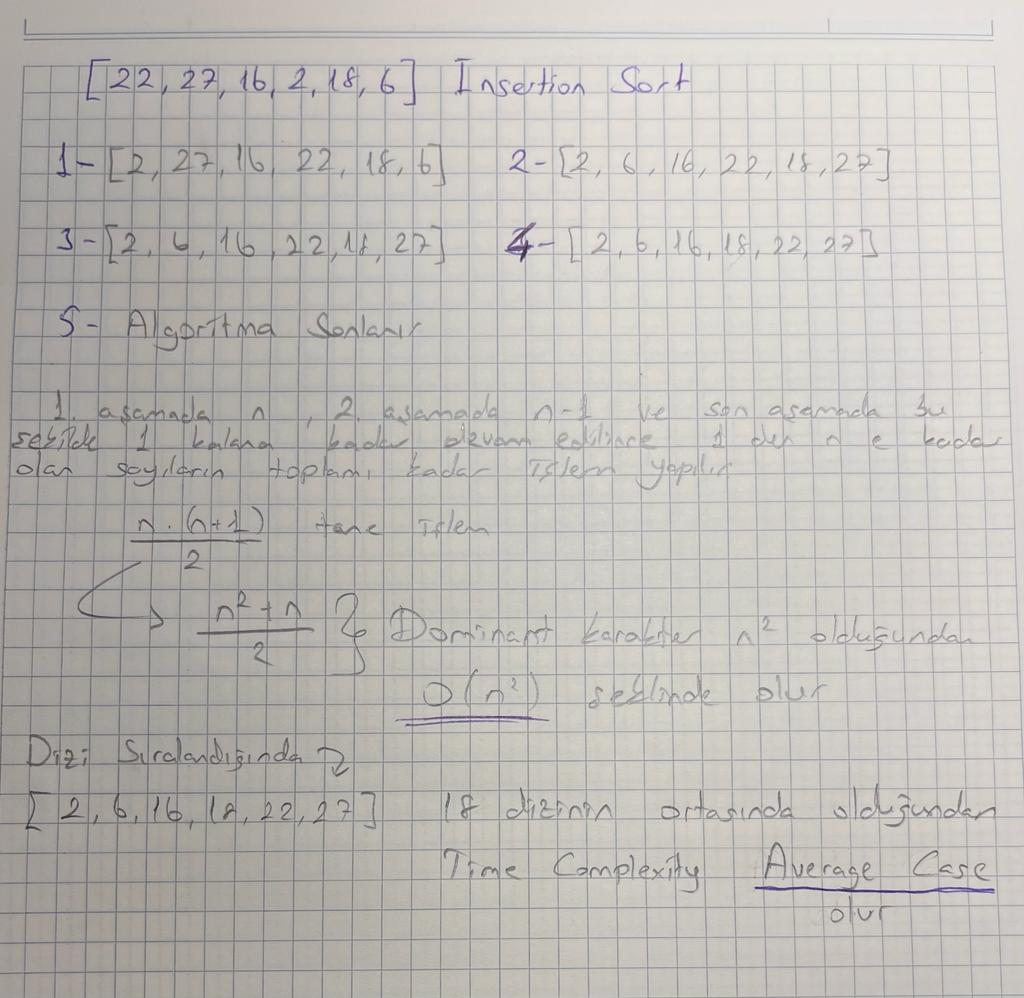 [22, 27, 16, 2, 18, 6] Insertion Sort
1- [2, 27, 16, 22, 18, 6] 2- [2, 6, 16, 22, 18, 27]
3- [2, 6, 16, 22, 18, 27] 4- [2, 6, 16, 18, 22, 27]
5- Algoritma Sonlanır
1. aşamada n, 2. aşamada n-1 ve son aşamada bu
şekilde 1 kalana kadar devam edilince 1 den n e kadar
olan sayıların toplamı kadar işlem yapılır
n.(n+1) tane işlem
2
n² + n } Dominant karakter n² olduğundan
2
O(n²) şeklinde olur
Dizi Sıralandığında
[2, 6, 16, 18, 22, 27] 18 dizinin ortasında olduğundan
Time Complexity Average Case
olur